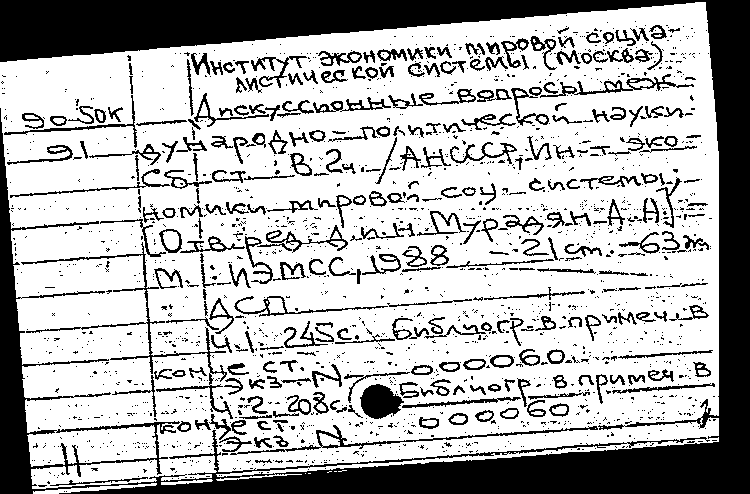 Институт экономики мировой социа-
листической системы (Москва)
90-50к Дискуссионные вопросы меж-
91 дународно-политической науки:
Сб. ст.: В 2ч. / АН СССР, Ин-т эко-
номики мировой соц. системы;
[Отв. ред. д.и.н. Мурадян А.А.] -
М.: ИЭМСС, 1988. - 21 ст. - 63
ДСП.
Ч.1. 245с. Библиогр. в примеч. в
конце ст.
Экз. N 000060
Ч.2. 208с. Библиогр. в примеч. в
конце ст.
Экз. N 000060
11